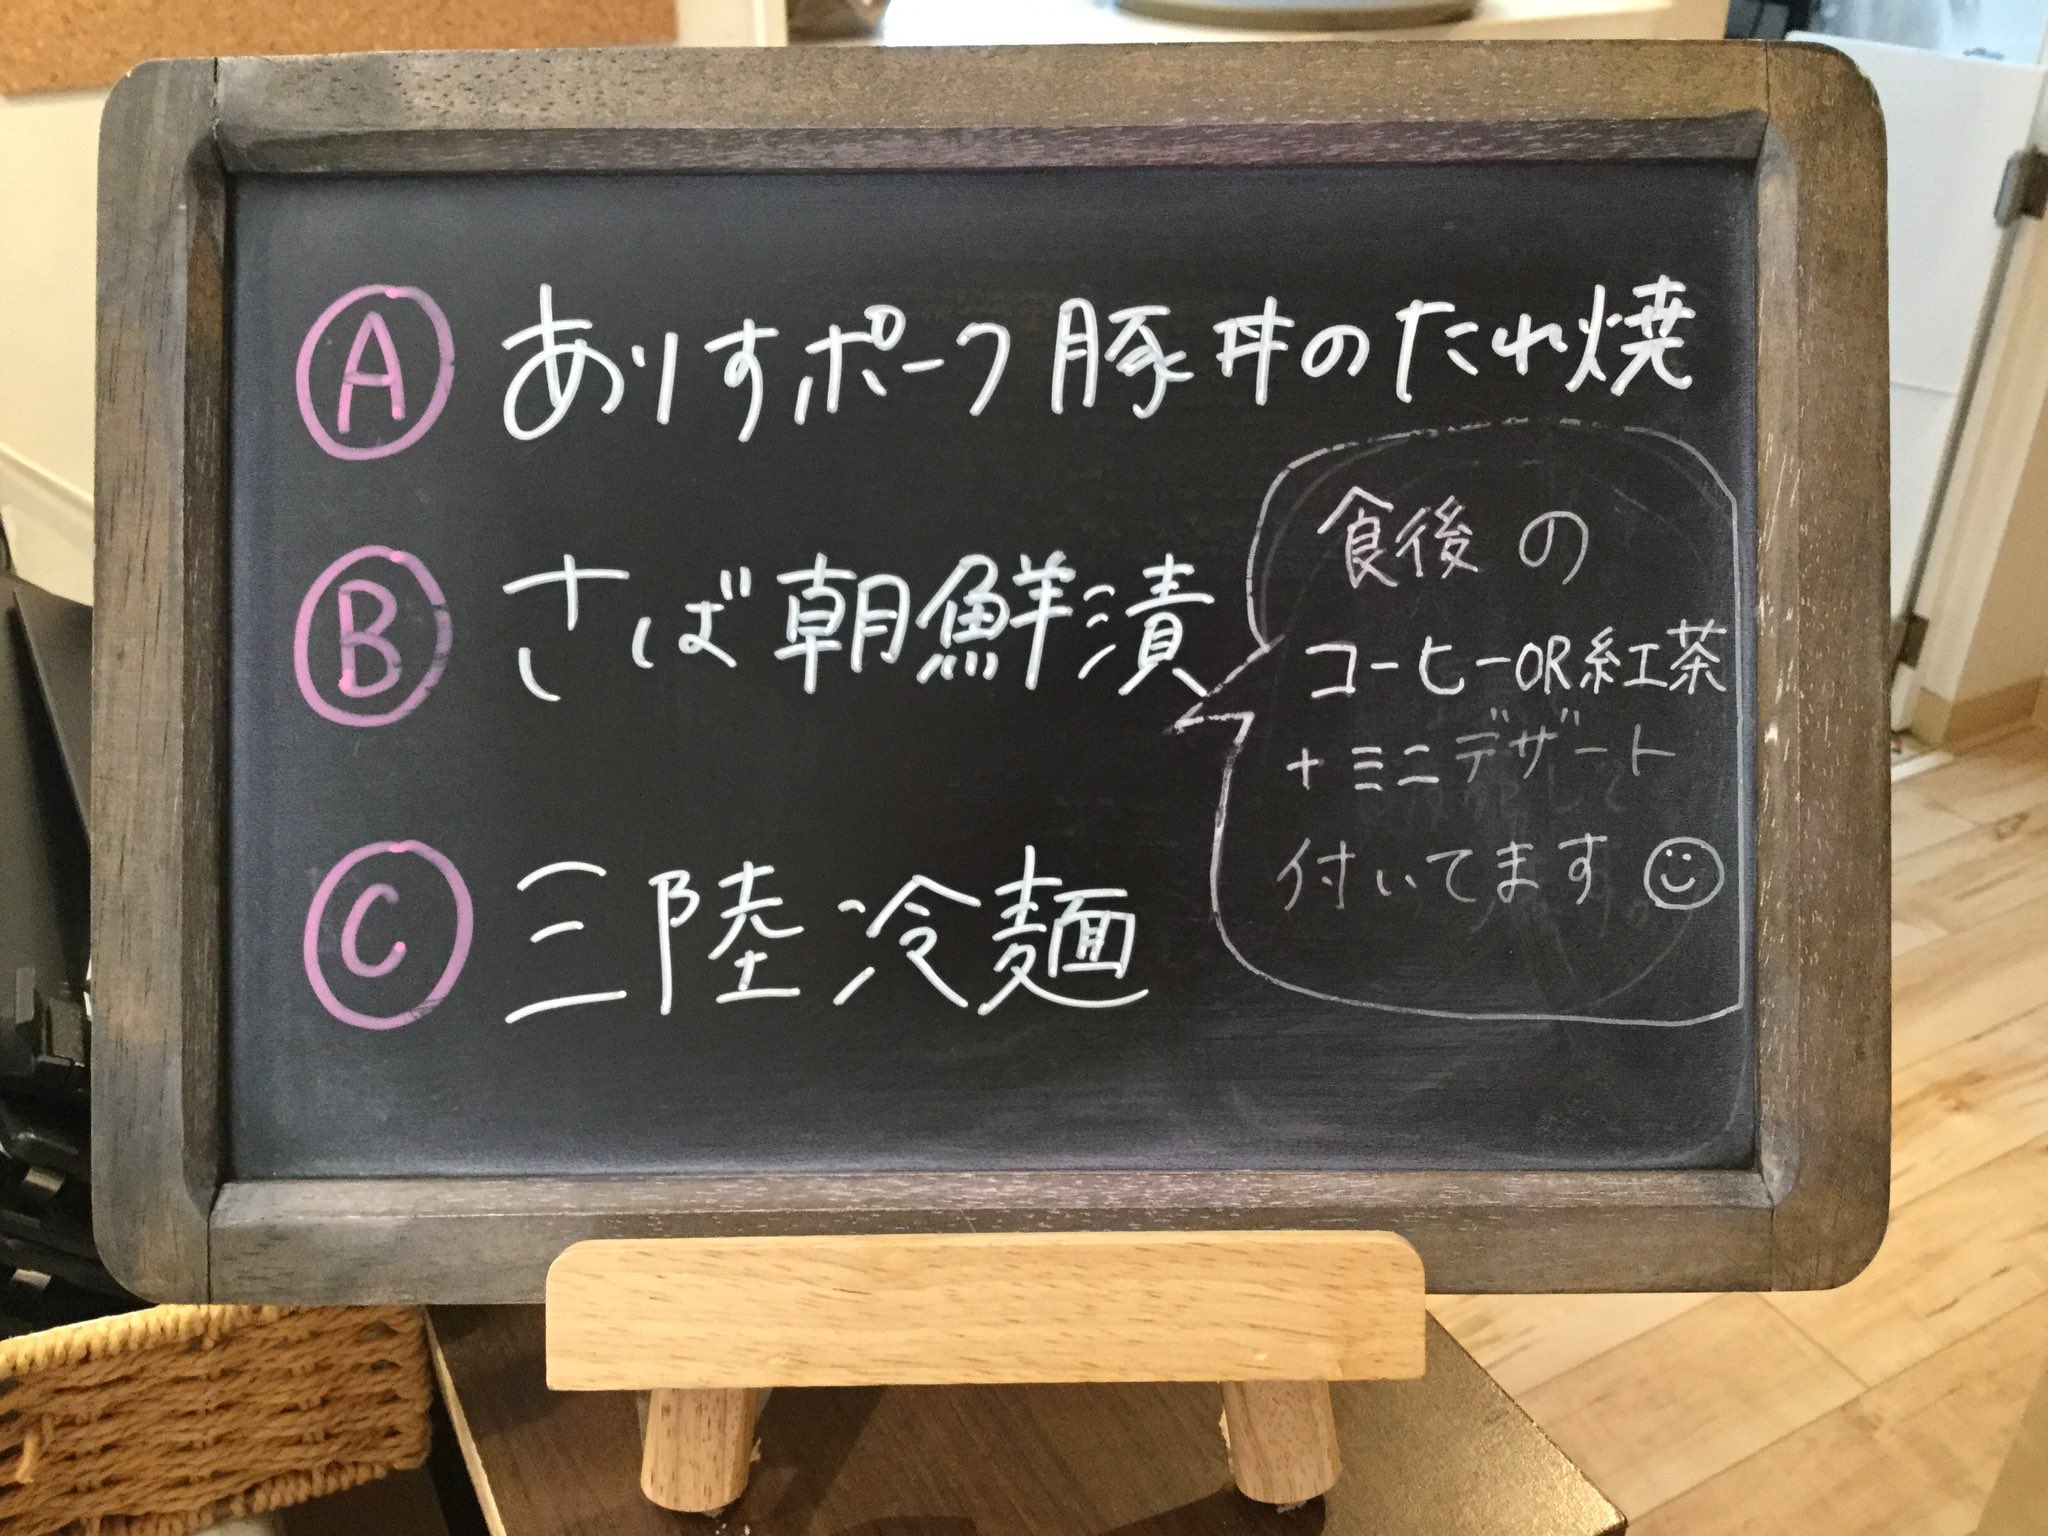 Ⓐ ありすポーク豚丼のたれ焼
Ⓑ さば朝鮮漬
Ⓒ 三陸冷麺
食後の
コーヒーOR紅茶
+ミニデザート
付いてます☺